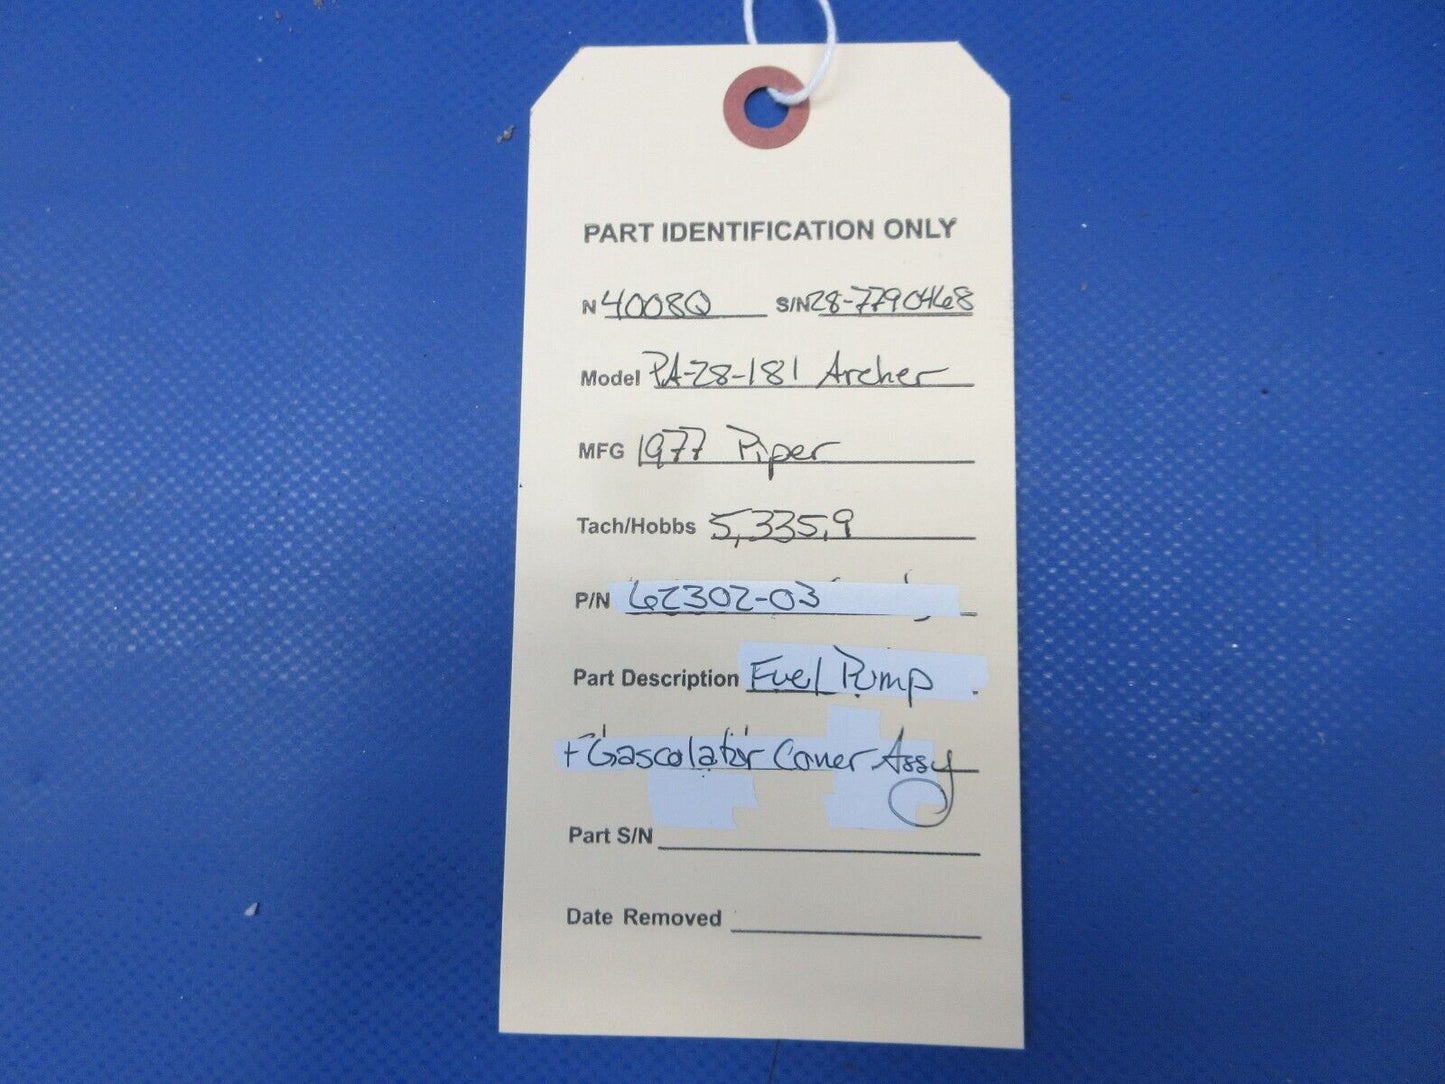 PART IDENTIFICATION ONLY
N 4008Q S/N 28-7790468
Model PA-28-181 Archer
MFG 1977 Piper
Tach/Hobbs 5,335.9
P/N 62302-03
Part Description Fuel Pump
+ Gascolator Cover Assy
Part S/N
Date Removed